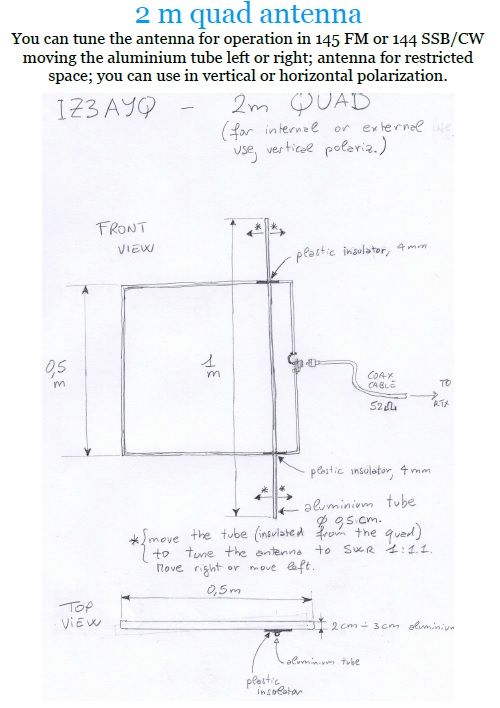 2 m quad antenna
You can tune the antenna for operation in 145 FM or 144 SSB/CW
moving the aluminium tube left or right; antenna for restricted
space; you can use in vertical or horizontal polarization.
IZ3AYQ - 2m QUAD
(for internal or external
use, vertical polariz.)
FRONT
VIEW
* *
plastic insulator, 4mm
0,5
m
1
m
COAX
CABLE
52Ω
TO
RTX
plastic insulator, 4mm
* *
aluminium tube
Ø 0,5 cm.
* move the tube (insulated from the quad)
to tune the antenna to SWR 1:1.1.
Move right or move left.
0,5m
TOP
VIEW
2cm ÷ 3cm aluminium
aluminium tube
plastic
insolator